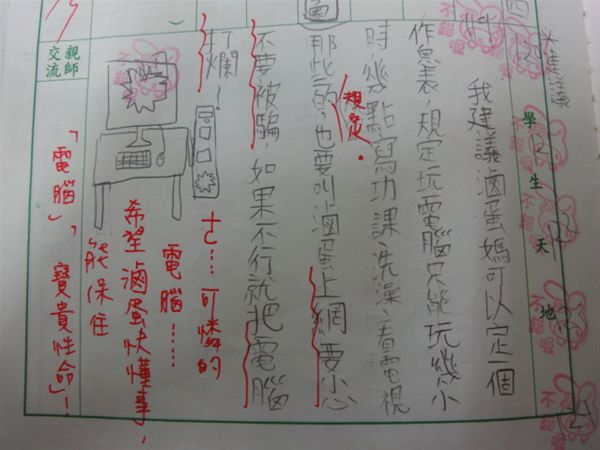 學生天地
我建議滷蛋媽可以定一個
作息表,規定玩電腦只能玩幾小
時,幾點寫功課、洗澡、看電視
規定
那些的,也要叫滷蛋上網要小心
不要被騙,如果不行就把電腦
打爛!
可憐的
電腦……
希望滷蛋快懂事,
能保住
「電腦」、寶貴性命!
親師
交流
不錯喔
不錯喔
不錯喔
不錯喔